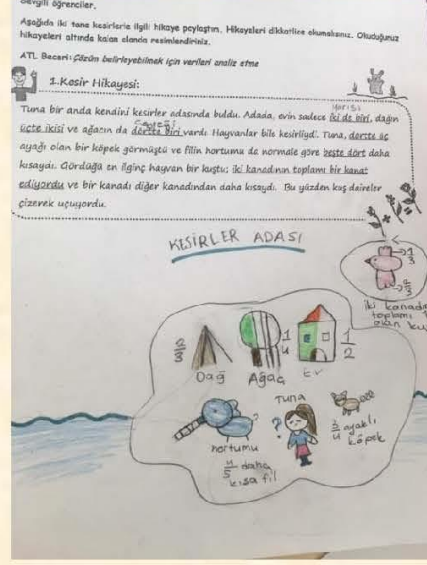 Sevgili öğrenciler,
Aşağıda iki tane kesirlerle ilgili hikaye paylaştım. Hikayeleri dikkatlice okumalısınız. Okuduğunuz
hikayeleri altında kalan alanda resimlendiriniz.
ATL Beceri: Çözüm belirleyebilmek için verileri analiz etme
1.Kesir Hikayesi:
yarısı
Tuna bir anda kendini kesirler adasında buldu. Adada, evin sadece iki de biri, dağın
çeyreği
üçte ikisi ve ağacın da dörtte biri vardı. Hayvanlar bile kesirliydi. Tuna, dörtte üç
ayağı olan bir köpek görmüştü ve filin hortumu da normale göre beşte dört daha
kısaydı. Gördüğü en ilginç hayvan bir kuştu; iki kanadının toplamı bir kanat
ediyordu ve bir kanadı diğer kanadından daha kısaydı. Bu yüzden kuş daireler
çizerek uçuyordu.
KESİRLER ADASI
1/3
2/3
iki kanadı
toplamı 1
olan ku
2/3
1/4
1/2
Dağ Ağaç Ev
TUNA
?
?
3/4 ayaklı
köpek
hortumu
4/5 daha
kısa fil